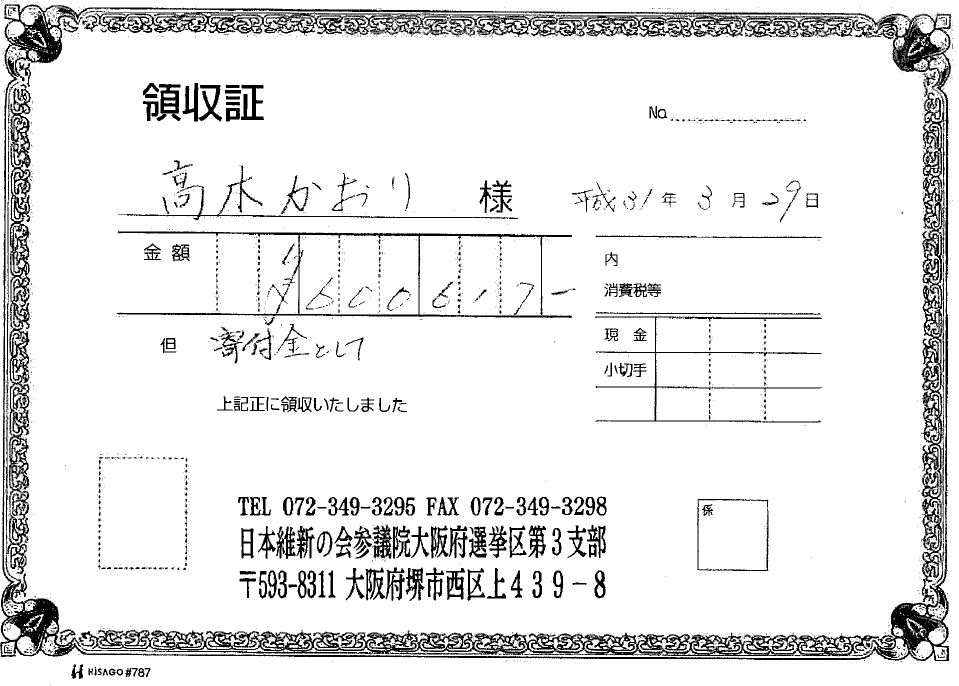 領収証
No.
高木かおり 様 平成31年3月29日
金額 ¥600617-
内
消費税等
現金
小切手
但 寄付金として
上記正に領収いたしました
係
TEL 072-349-3295 FAX 072-349-3298
日本維新の会参議院大阪府選挙区第3支部
〒593-8311 大阪府堺市西区上439-8
HISAGO #787